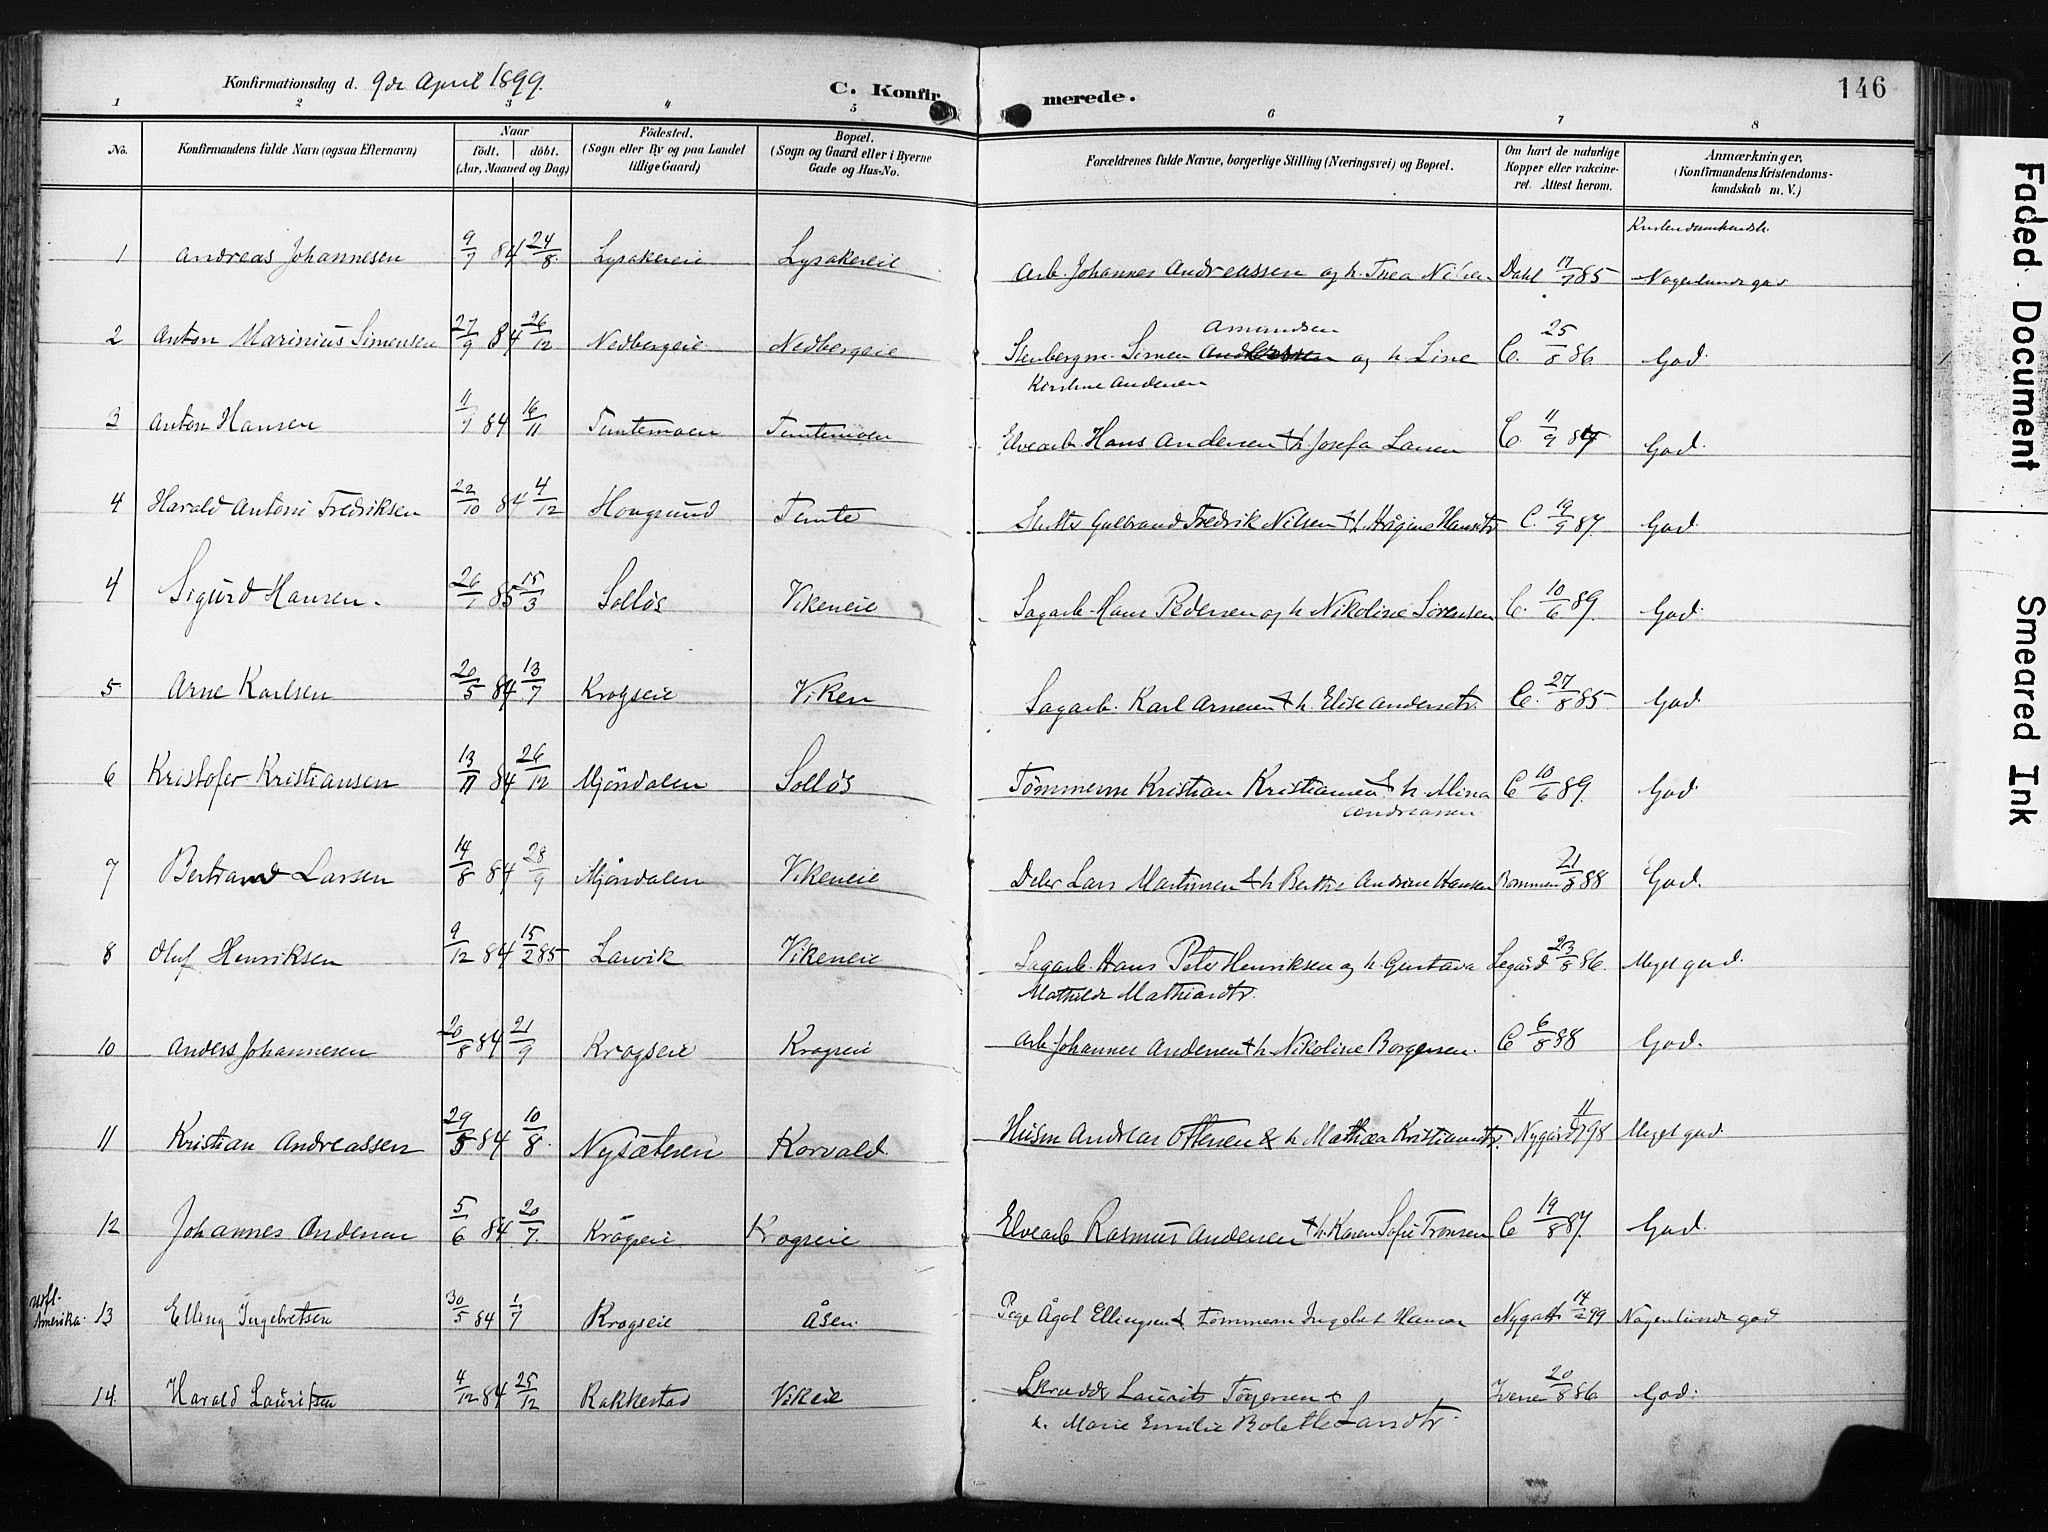 Konfirmationsdag d. 9de April 1899.
C. Konfirmerede.
146
1 2 3 4 5 6 7 8
No. Konfirmandens fulde Navn (ogsaa Efternavn) Naar født. døbt. (Aar, Maaned og Dag) Fødested. (Sogn eller By og paa Landet tillige Gaard) Bopæl. (Sogn og Gaard eller i Byerne Gade og Hus-No. Forældrenes fulde Navne, borgerlige Stilling (Næringsvei) og Bopæl. Om havt de naturlige Kopper eller vakcineret. Attest herom. Anmærkninger, (Konfirmandens Kristendomskundskab m. V.)
1 Andreas Johannesen 9/7 84 24/8 Lysakereie Lysakereie Arb. Johannes Andreassen og h. Dahl 17/7 85
2 Anton Marinius Simensen 27/9 84 26/12 Nedbergeie Nedbergeie Simen Amundsen og h Line C. 25/8 86 God
Kirstine Andersen
3 Anton Hansen 11/9 84 16/11 Temtemoen Temtemoen Elvearb. Hans Andersen & h. Josefa Larsen C. 11/9 God
4 Harald Antoni Fredriksen 22/10 84 4/12 Hougsund Temte Gulbrand Fredrik Nilsen & h. C. 19/9 87. God
4 Sigurd Hansen. 26/1 85 15/3 Solløs Vikeneie Sagarb. Hans Pedersen og h Nikoline Sørensen C. 10/6 89. God.
5 Arne Karlsen 20/5 84 13/7 Krogseie Viken Sagarb. Karl Arnesen & h. Elise Andersdtr. C. 27/8 85 God
6 Kristofer Kristiansen 13/11 84 26/12 Mjöndalen Solløs Tømmerm Kristian Kristiansen & h Mina C 10/6 89. God.
Andreassen
7 Bertrand Larsen 14/8 84 28/9 Mjöndalen Vikeneie Lars Martinsen & h Berthe Andrine Hansen 21/8 88 God.
8 Oluf Henriksen 9/12 84 15/2 85 Larvik Vikeneie Sagarb. Hans Peter Henriksen og h Gustava 23/8 86. Meget god.
Mathilde Mathiasdtr.
10 Anders Johannesen 20/8 84 21/9 Krogseie Krogseie Arb Johannes Andersen & h Nikoline Borgersen. C 6/8 88 God.
11 Kristian Andreassen 29/5 84 10/8. Nysæteren Korvald. Husm Andreas Ottersen & h Mathea Kristiansdtr. Nygård 11/1 98 Meget god.
12 Johannes Andersen 5/6 84 20/7. Krogseie Krogseie Elvearb Rasmus Andersen & h. Karen Sofie Tronsen C 19/8 87. God.
Udfl. Amerika. 13 Elling Ingebretsen 30/5 84 1/7 Krogseie Åsen. Pige Ågot Ellingsen & Tømmerm Ingebret Hansen 14/2 99 Nogenlunde god
14. Harald Lauritsen 4/12 84 25/12 Rakkestad Vikeie Skrædder Laurits Torgersen & 20/8 86 God.
h. Marie Emilie Bolette Larsdtr.
Faded Document
Smeared Ink